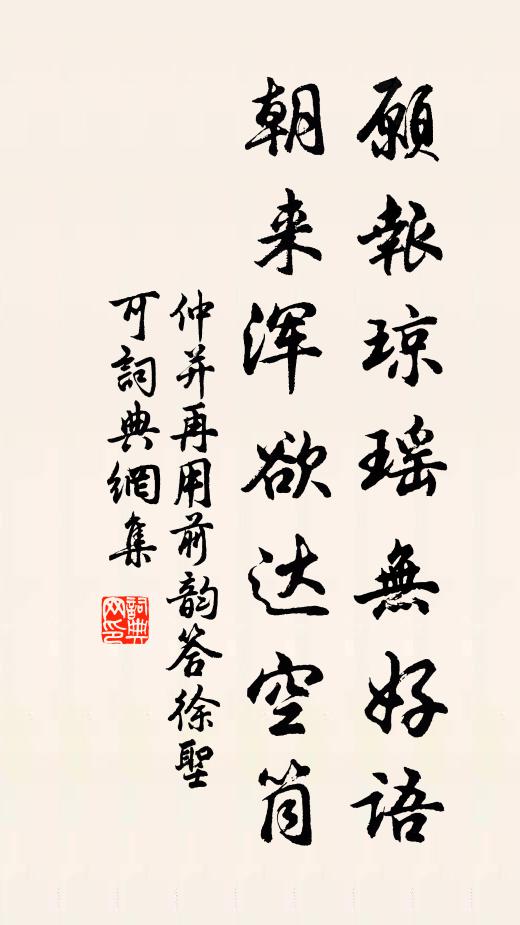 願報琼瑶無好语
朝来浑欲达空筒
仲并再用前韵答徐聖
可詞典網集
詞典网印